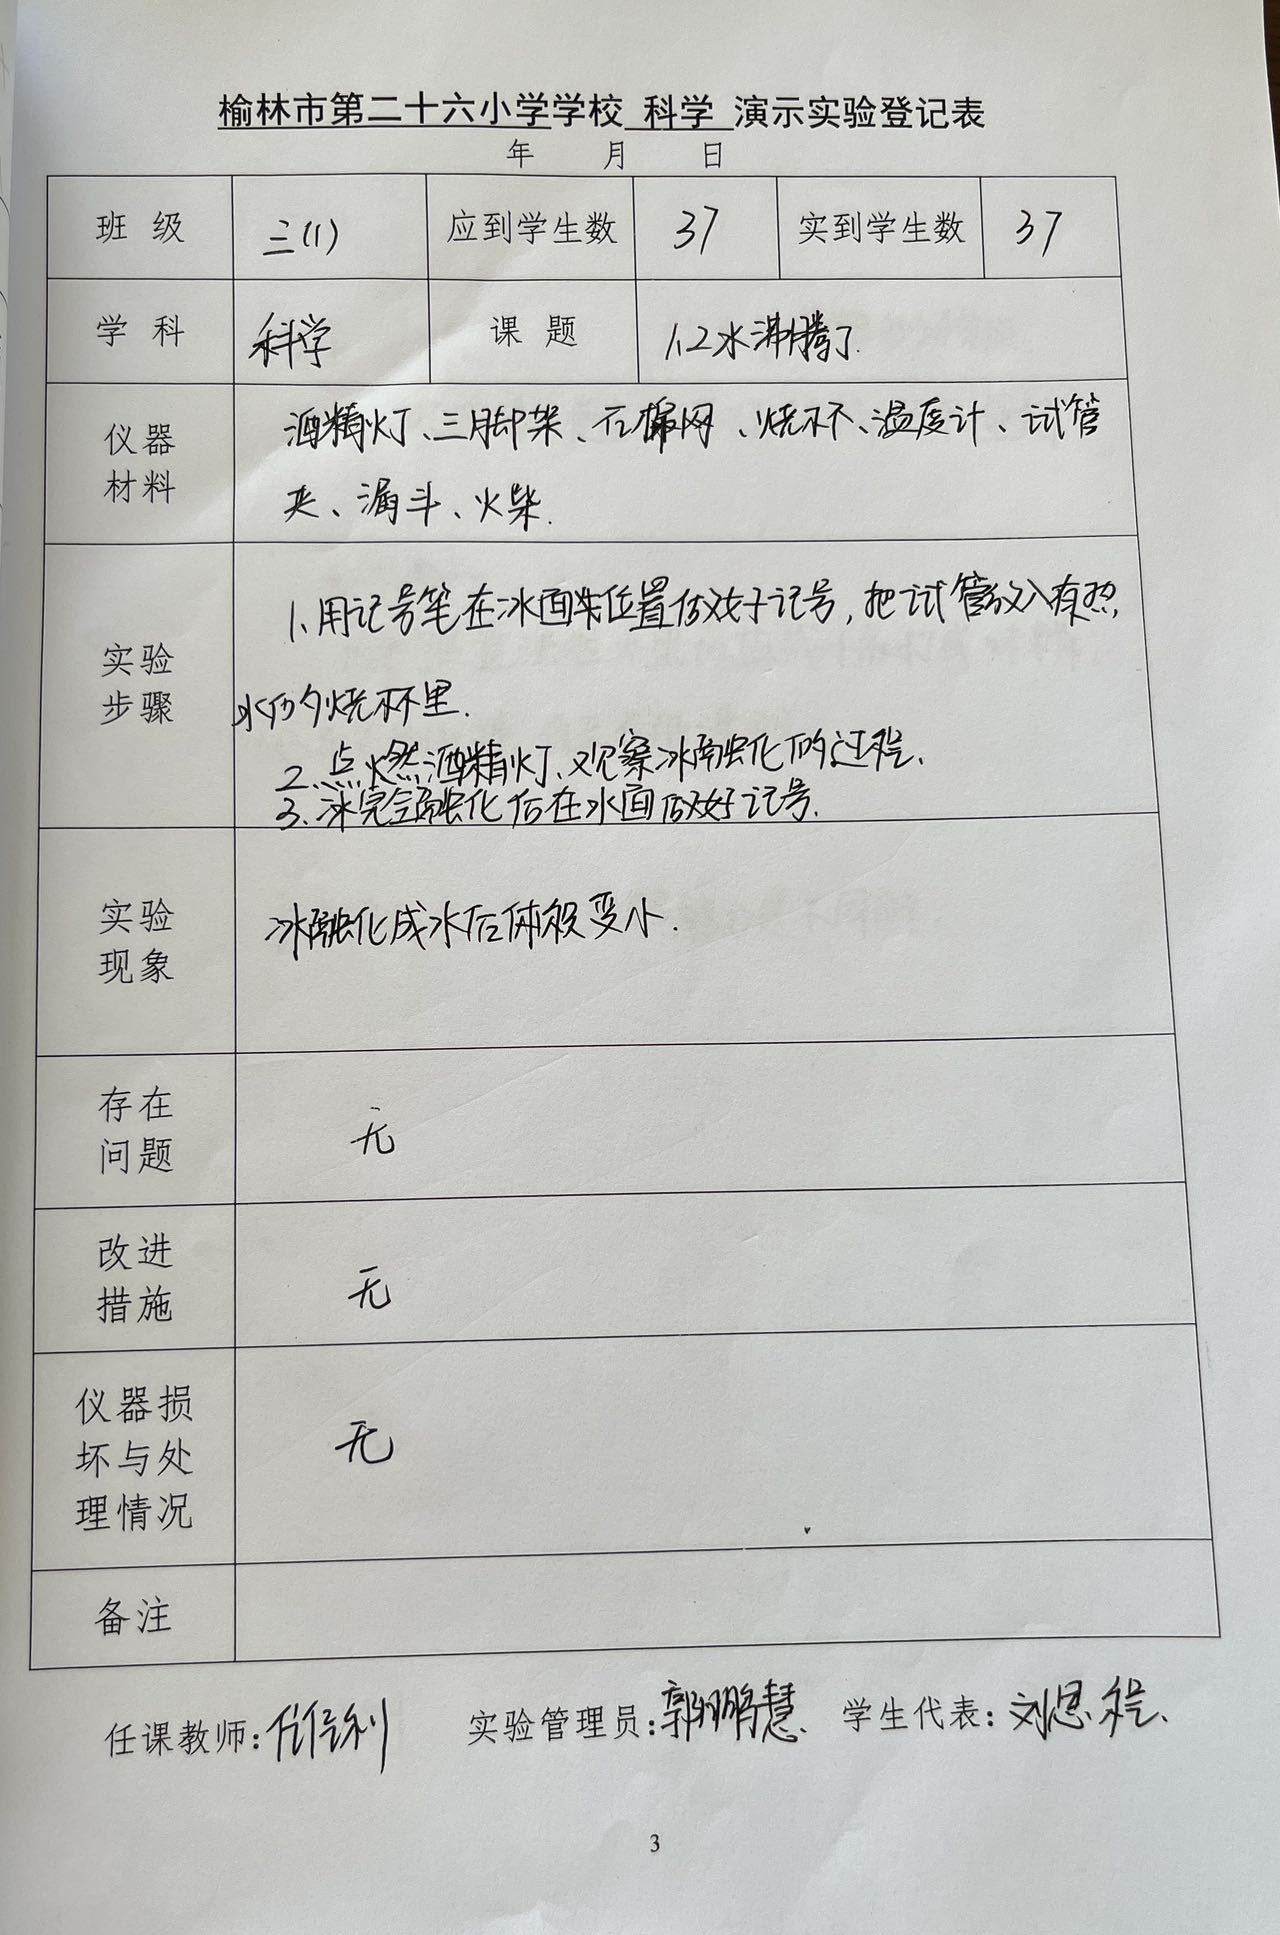 榆林市第二十六小学学校 科学 演示实验登记表
年 月 日
班 级 三(1) 应到学生数 37 实到学生数 37
学 科 科学 课 题 1.2水沸腾了.
仪器
材料
酒精灯、三脚架、石棉网、烧杯、温度计、试管
夹、漏斗、火柴.
实验
步骤
1.用记号笔在冰面位置做好记号,把试管放入有热
水的烧杯里.
2.点燃酒精灯、观察冰融化的过程.
3.冰完全融化后在水面做好记号.
实验
现象
冰融化成水后体积变小.
存在
问题
无
改进
措施
无
仪器损
坏与处
理情况
无
备注
任课教师: 实验管理员:郭鹏慧. 学生代表:刘思程.
3